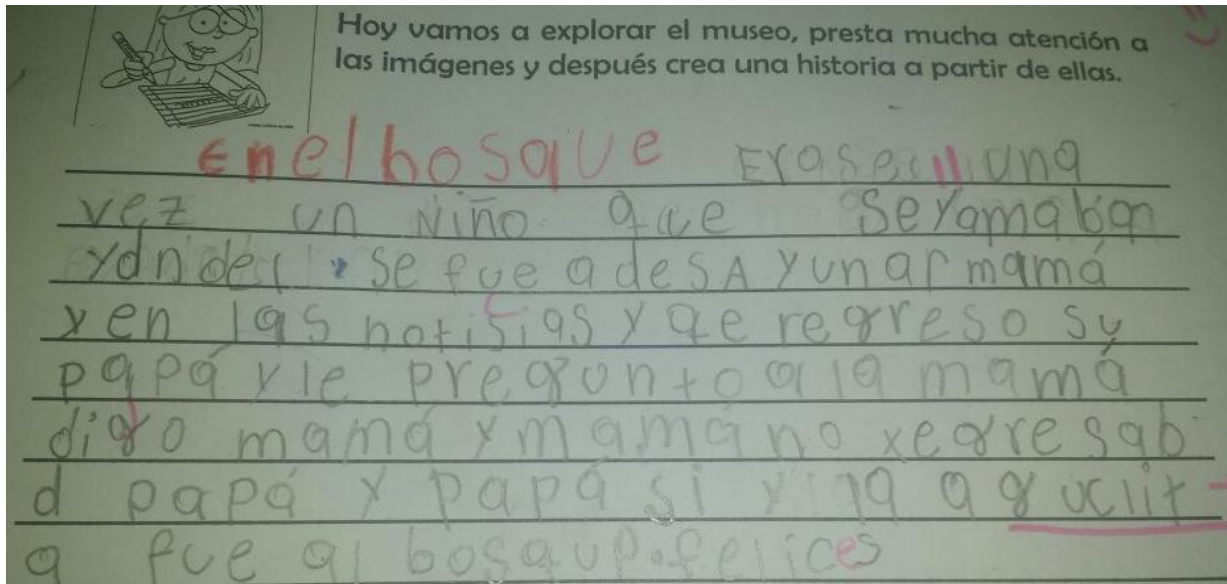 Hoy vamos a explorar el museo, presta mucha atención a
las imágenes y después crea una historia a partir de ellas.
En el bosque Erase una
vez un Niño que se yamaban
se fue a desAyunar mamá
y en las notisias y qe regreso su
papá y le pregonto a la mamá
digo mamá y mamá no regresab
papá y papá si y la a
a fue al bosque.felices